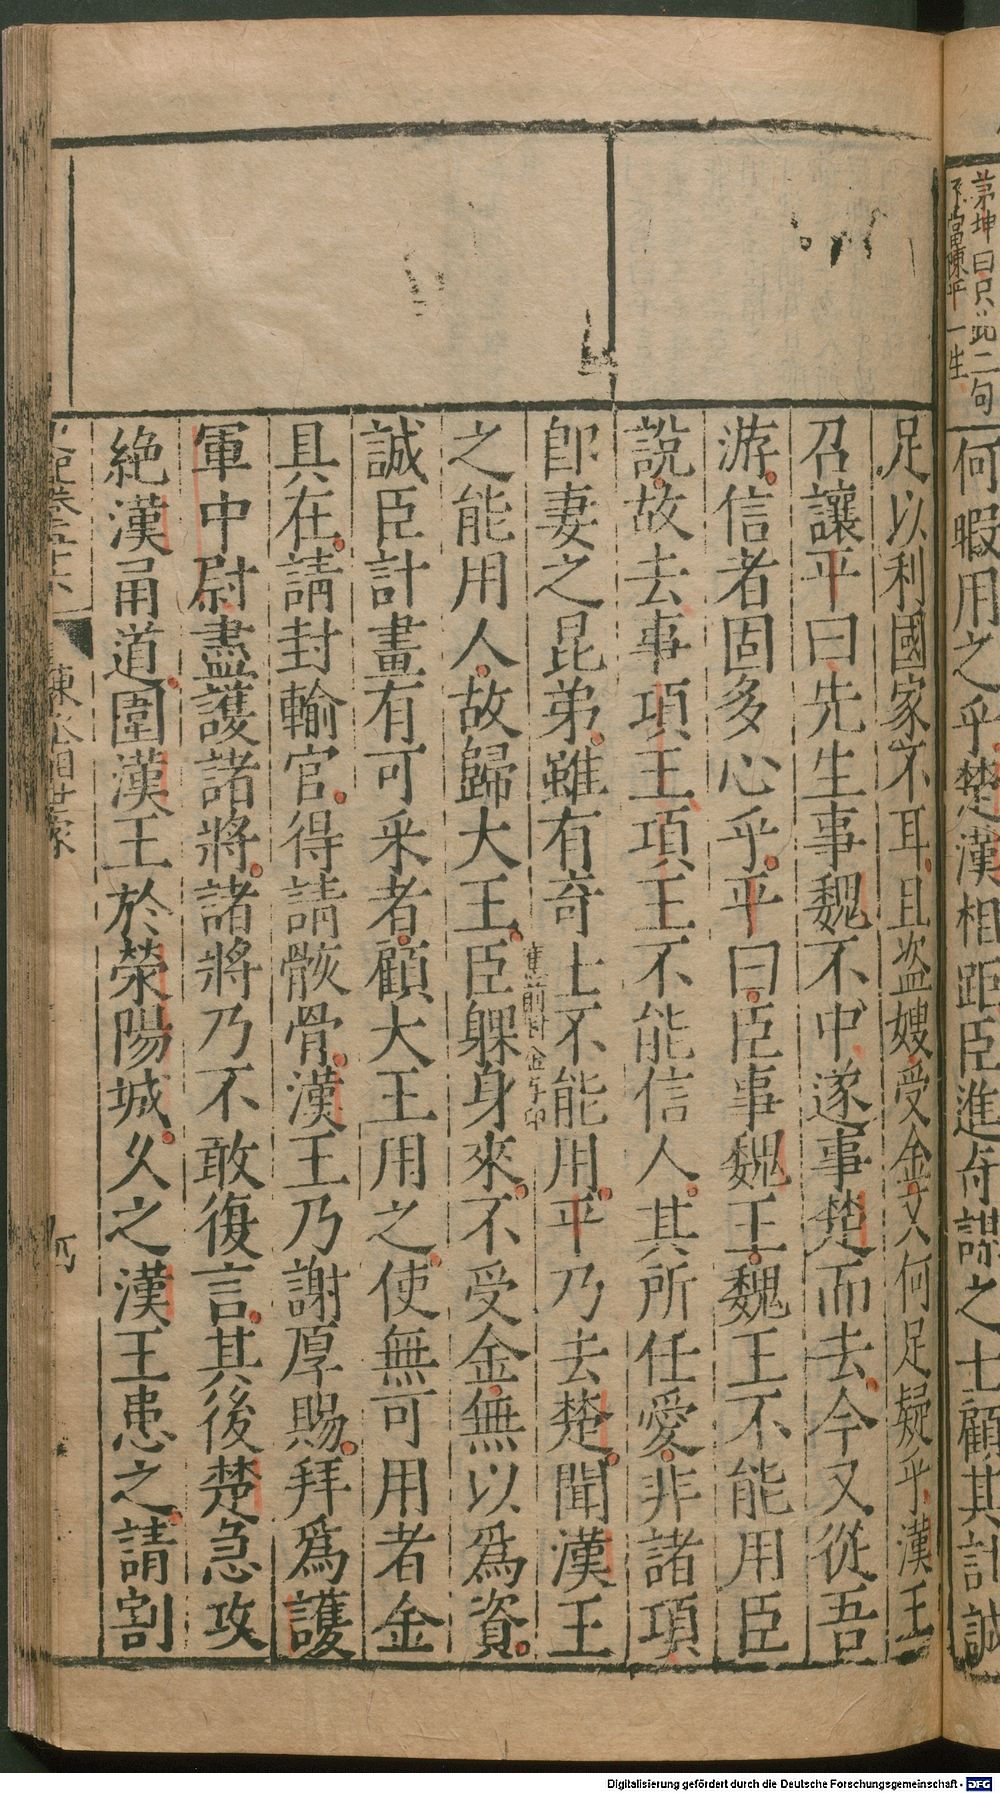 茅坤曰只此二句
下當陳平一生
何暇用之乎楚漢相距臣進奇謀之士顧其計誠
足以利國家不耳且盗嫂受金又何足疑乎漢王
召讓平曰先生事魏不中遂事楚而去今又從吾
游信者固多心乎平曰臣事魏王魏王不能用臣
說故去事項王項王不能信人其所任愛非諸項
卽妻之昆弟雖有奇士不能用平乃去楚聞漢王
之能用人故歸大王臣躶身來不受金無以爲資
誠臣計畫有可采者顧大王用之使無可用者金
具在請封輸官得請骸骨漢王乃謝厚賜拜爲護
軍中尉盡護諸將諸將乃不敢復言其後楚急攻
絶漢甬道圍漢王於滎陽城久之漢王患之請割
陳丞相世家
Digitalisierung gefördert durch die Deutsche Forschungsgemeinschaft - DFG